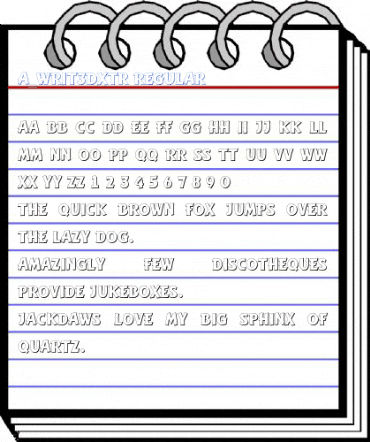 A_WRIT3DXTR REGULAR
AA BB CC DD EE FF GG HH II JJ KK LL
MM NN OO PP QQ RR SS TT UU VV WW
XX YY ZZ 1 2 3 4 5 6 7 8 9 0
THE QUICK BROWN FOX JUMPS OVER
THE LAZY DOG.
AMAZINGLY FEW DISCOTHEQUES
PROVIDE JUKEBOXES.
JACKDAWS LOVE MY BIG SPHINX OF
QUARTZ.